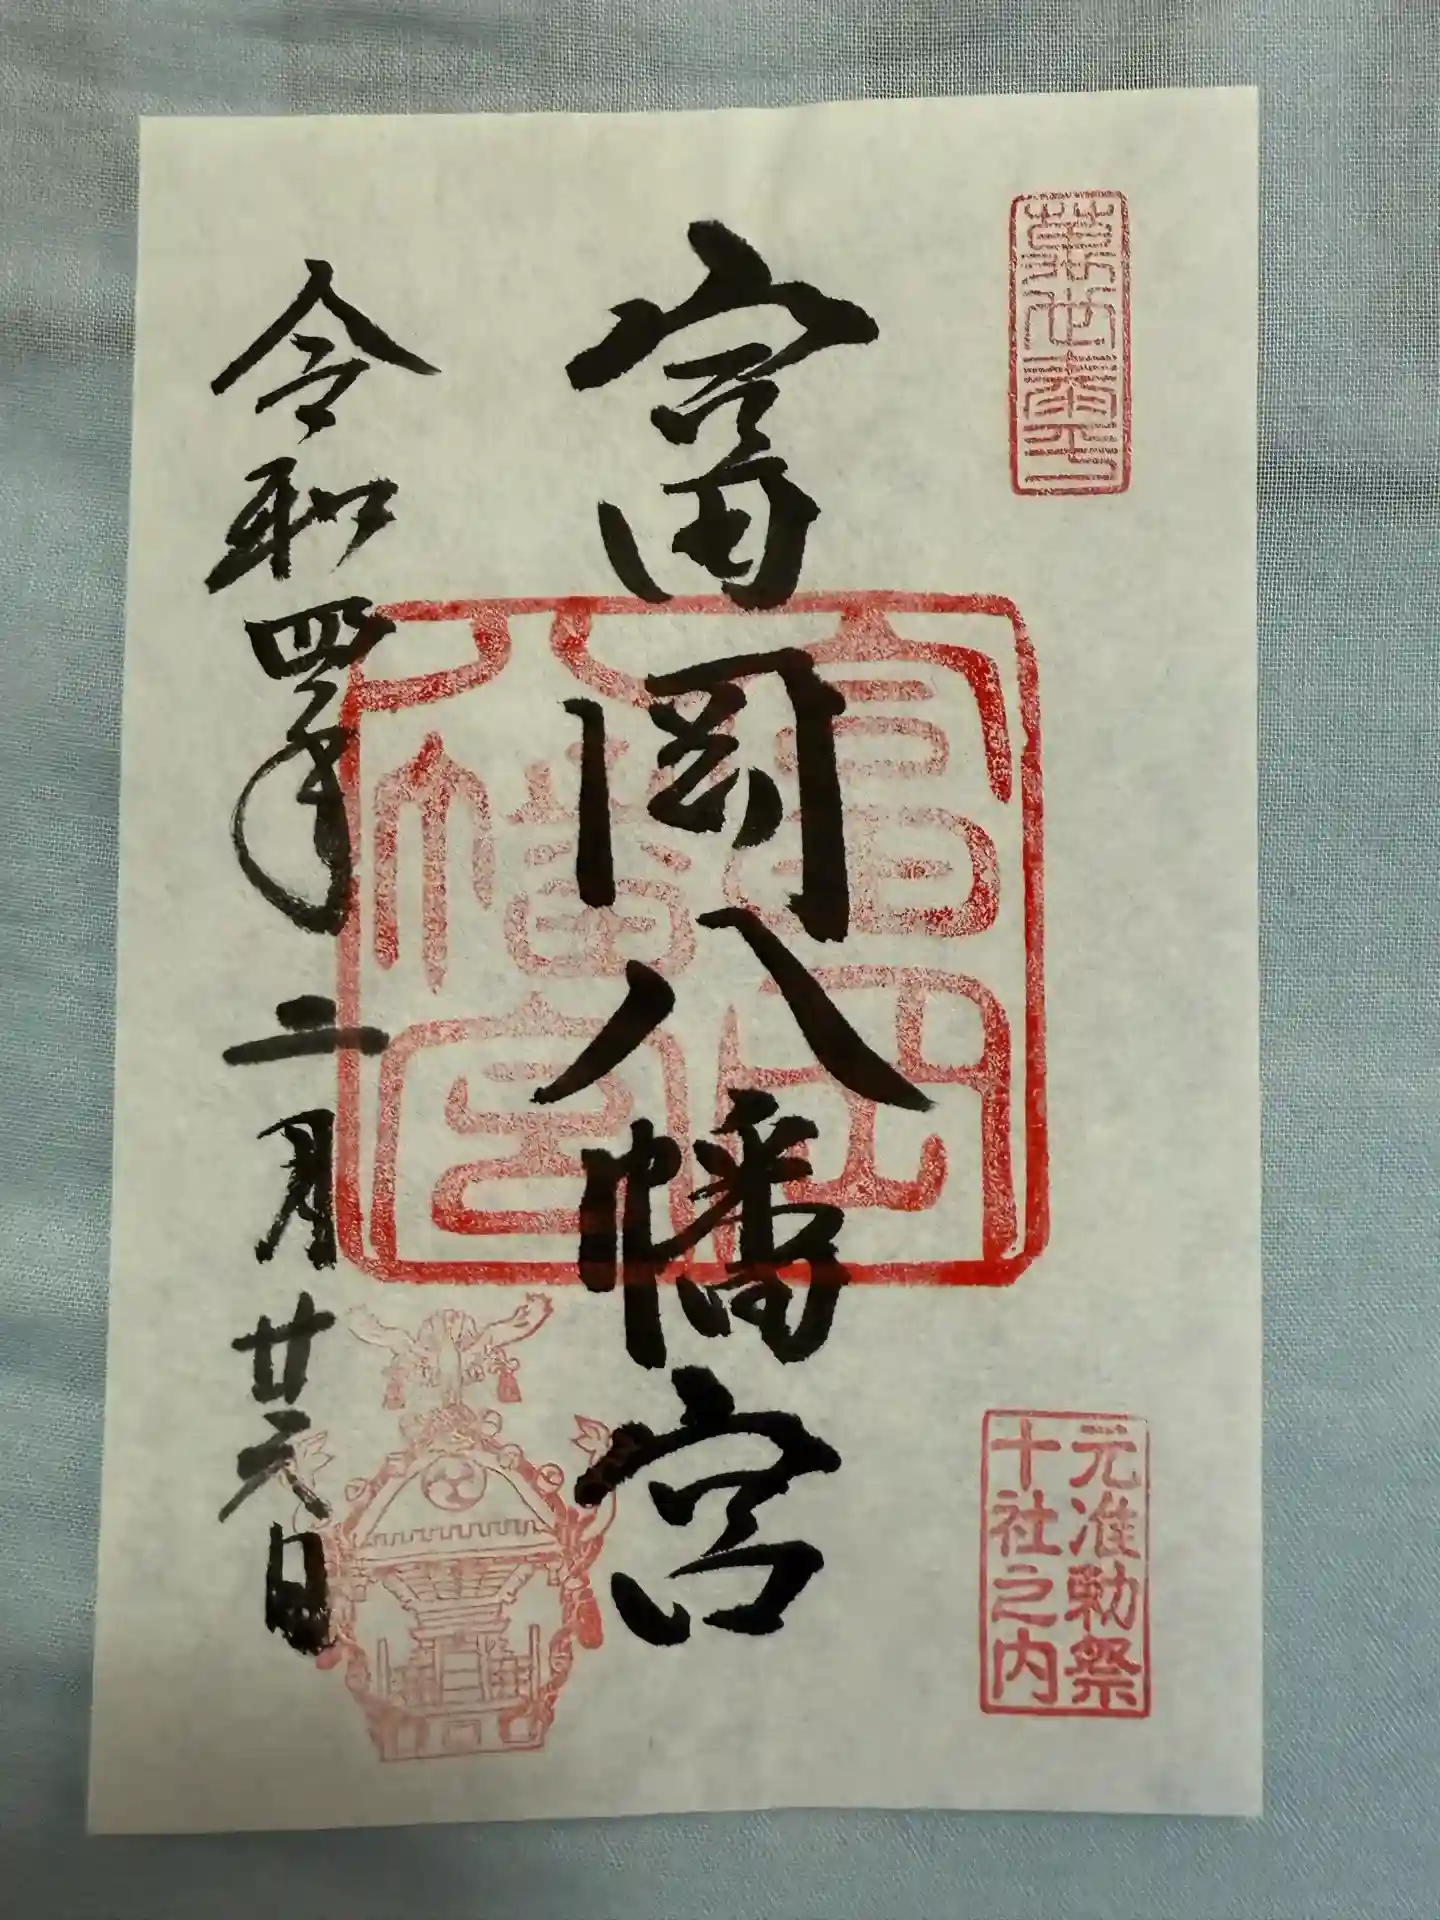 元准勅祭
十社之内
富岡八幡宮
富岡
八幡宮
令和四年二月廿六日